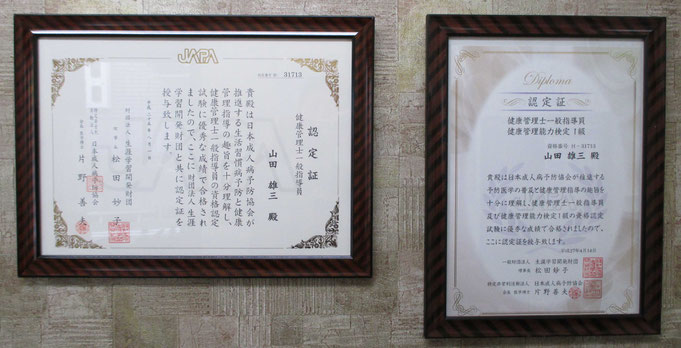 JAPA
認定証
健康管理士一般指導員
山田 雄三 殿
貴殿は日本成人病予防協会が
推進する生活習慣病予防と健康
管理指導の趣旨を十分理解し、
健康管理士一般指導員の資格認定
試験に優秀な成績で合格され
ましたので、ここに財団法人生涯
学習開発財団と共に認定証を
授与致します。
財団法人 生涯学習開発財団
理事長 松田妙子
日本成人病予防協会
片野善夫
31713
Diploma
認定証
健康管理士一般指導員
健康管理能力検定1級
資格番号 H-31713
山田 雄三 殿
貴殿は日本成人病予防協会が推進する
予防医学の普及と健康管理指導の趣旨を
十分に理解し、健康管理士一般指導員
及び健康管理能力検定1級の資格認定
試験に優秀な成績で合格されましたので、
ここに認定証を授与致します。
平成27年4月14日
一般財団法人 生涯学習開発財団
理事長 松田妙子
特定非営利活動法人 日本成人病予防協会
会長 医学博士 片野善夫